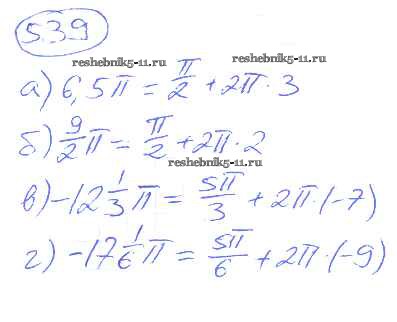 539
reshebnik5-11.ru
reshebnik5-11.ru
а) 6,5π = π/2 + 2π · 3
б) 9/2 π = π/2 + 2π · 2
reshebnik5-11.ru
в) -12 1/3 π = 5π/3 + 2π · (-7)
г) -17 1/6 π = 5π/6 + 2π · (-9)